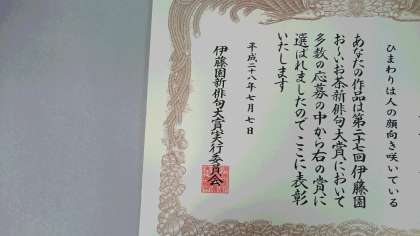 ひまわりは人の顔向き咲いている
あなたの作品は第二十七回伊藤園
お〜いお茶新俳句大賞において
多数の応募の中から右の賞に
選ばれましたのでここに表彰
いたします
平成二十八年七月七日
伊藤園新俳句大賞実行委員会